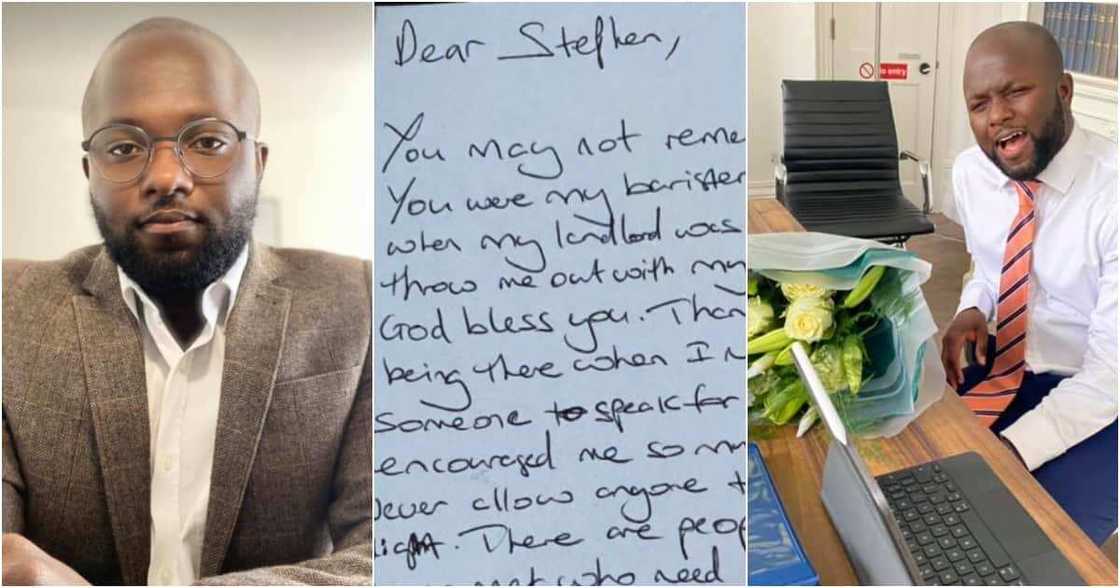 Dear Stephen,
You may not reme
You were my barister
when my landlord was
throw me out with my
God bless you. Than
being there when I n
someone to speak for
encouraged me so m
Never allow anyone t
light. There are peop
met who need
o entry